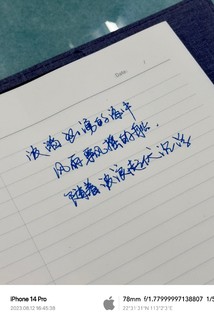 Date: /
波涛汹涌的海中
风雨飘摇的船,
随着波浪起伏沉浮
iPhone 14 Pro
2023.08.12 16:45:38
78mm f/1.77999997138807 1/5